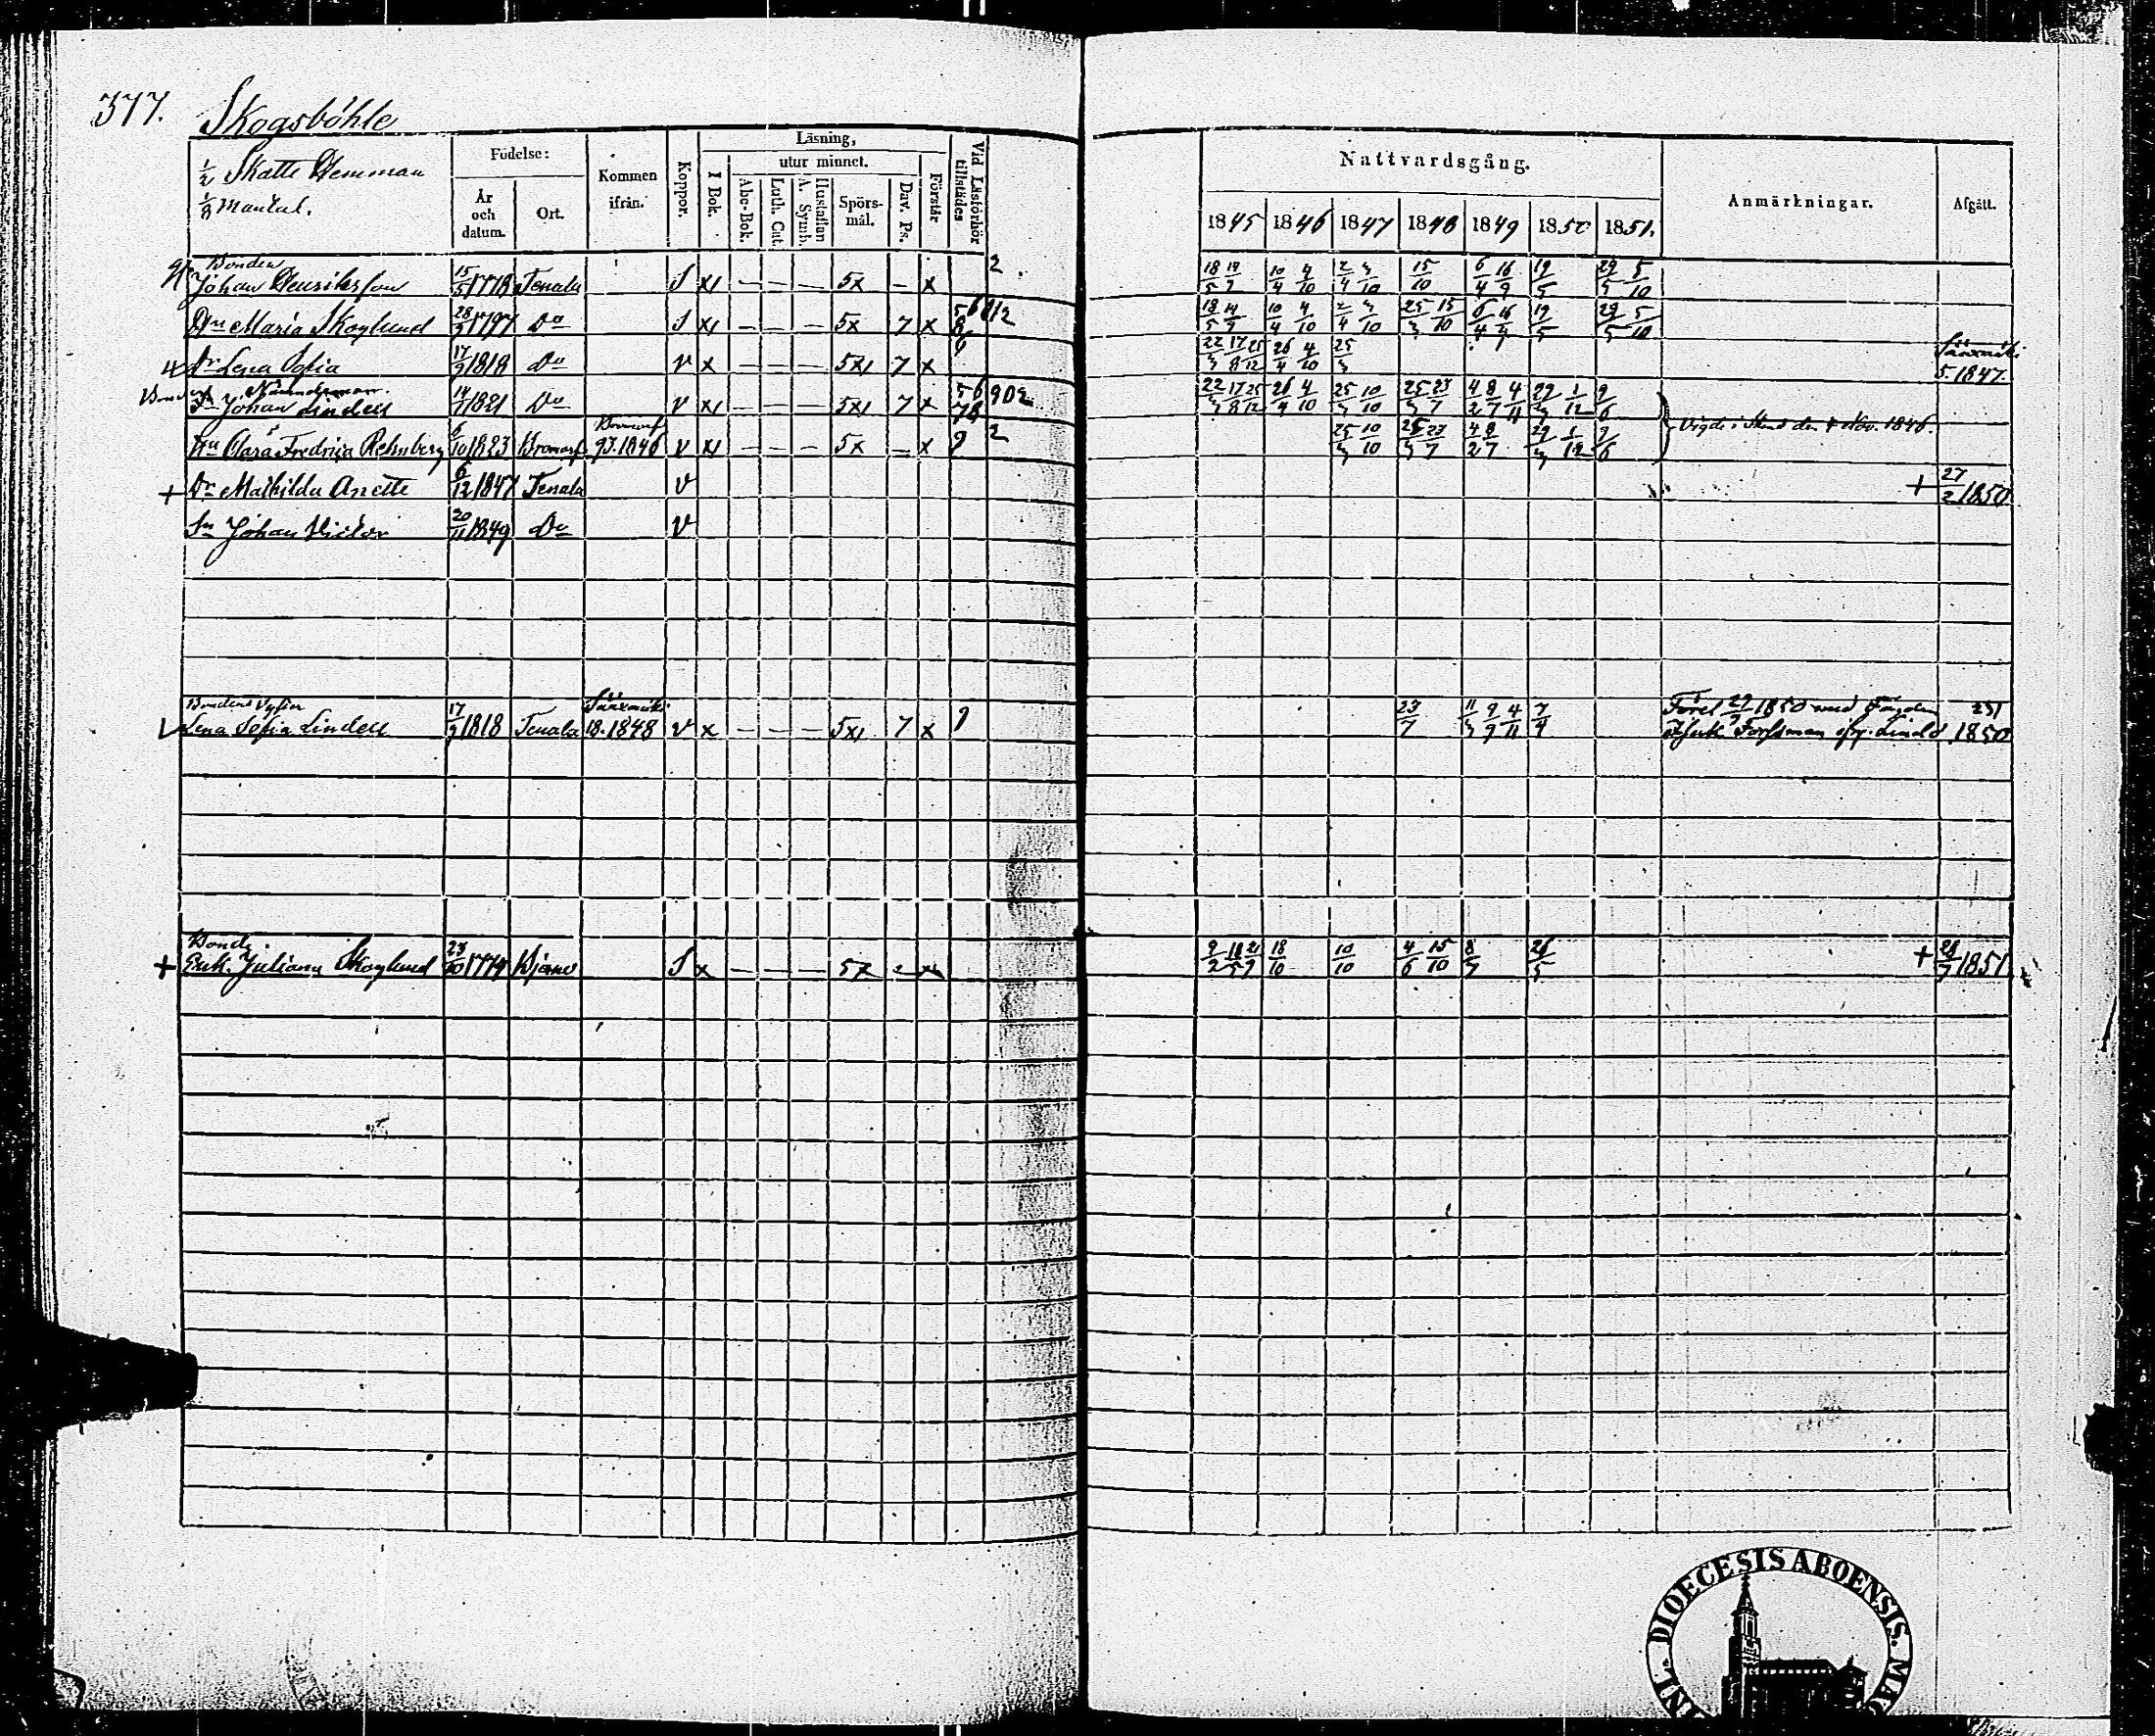 377. Skogsböhle
1/2 Skatte Hemman
1/8 Mantal.
Födelse:
År och datum.
Ort.
Kommen ifrån.
Koppor.
Läsning,
I Bok.
utur minnet.
Abc-Bok.
Luth. Cat.
Hustaflan A. Symb.
Spörs-mål.
Dav. Ps.
Förstår
Vid Läsförhör tillstädes
Nattvardsgång.
1845 1846 1847 1848 1849 1850 1851.
Anmärkningar.
Afgått.
Bonden
Johan Henriksson 15/5 1778 Tenala S x — — — 5x — x 2 18/5 10/4 4/10 15/10 6/4 16/9 19/5 29/5 5/10
Hu Maria Skoglund 28/9 1797 Do S x — — — 5x 7 x 18/5 10/4 4/10 25/3 15/10 6/4 19/5 29/5 5/10
Dr Lena Sofia 17/9 1818 Do v x — — — 5x 7 x 22/3 17/8 25/12 26/4 4/10 25/3 Sääxmäki 5. 1847.
Nämndeman
Sn Johan Lindell 14/7 1821 Do v x — — — 5x 7 x 5 6 7 8 9 0 2 22/3 17/8 25/12 26/4 4/10 25/3 10/10 25/3 23/7 4/2 8/7 4/11 29/3 1/12 9/6
Hu Clara Fredrica Rehnberg 6/10 1823 Bromarf Bromarf 93. 1846 v x — — — 5x — x 9 2 25/3 10/10 25/3 23/7 4/2 8/7 29/3 1/12 9/6 Vigde i Stånd den Nov. 1846.
+ Dr Mathilda Anette 6/12 1847 Tenala v + 27/2 1850
Sn Johan Victor 20/11 1849 Do v
Bondens Syster
Lena Sofia Lindell 17/9 1818 Tenala Sääxmäki 18. 1848 v x — — — 5x 7 x 9 23/7 11/3 9/9 4/11 7/4 1850 med 251
Forssman 1850
Bonde
+ Enk. Juliana Skoglund 23/10 1774 S x — — — 5x 9/2 18/5 18/10 10/10 4/6 15/10 8/7 26/5 + 28/7 1851
DIOECESIS ABOENSIS.